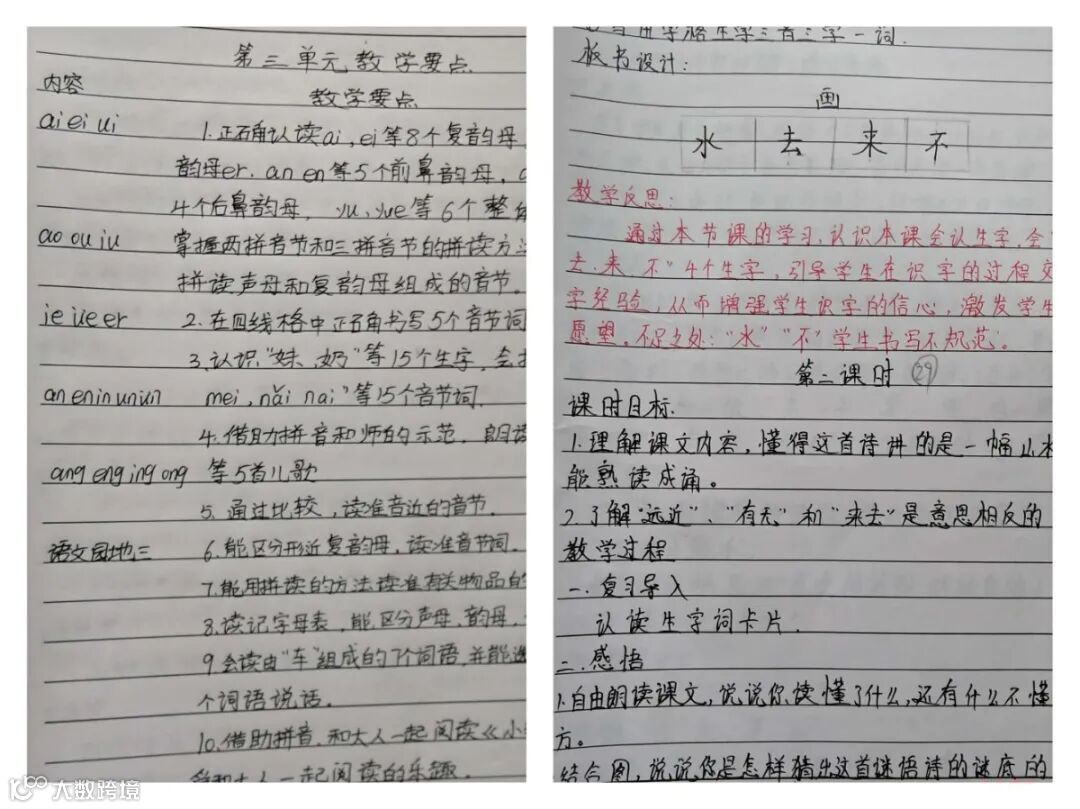 第三单元教学要点
内容
教学要点
ai ei ui
1.正确认读ai,ei等8个复韵母
韵母er.an en等5个前鼻韵母,
4个后鼻韵母, yu、yue等6个整体
ao ou iu
掌握两拼音节和三拼音节的拼读方法
拼读声母和复韵母组成的音节。
ie üe er
2.在四线格中正确书写5个音节词
3.认识“妹、奶”等15个生字,会
an en in un ün
mei,nǎi nai”等15个音节词.
4.借助拼音和师的示范,朗读
ang eng ing ong
等5首儿歌
5.通过比较,读准音近的音节.
语文园地三
6.能区分形近复韵母,读准音节词.
7.能用拼读的方法读准有关物品的
8.读记字母表,能区分声母、韵母,
9.会读由“车”组成的7个词语,并能选
个词语说话.
10.借助拼音,和大人一起阅读《小
和大人一起阅读的乐趣.
一词.
板书设计:
画
水 去 来 不
教学反思:
通过本节课的学习,认识本课会认生字,会
去、来、不”4个生字,引导学生在识字的过程交
字经验,从而增强学生识字的信心,激发学生
愿望。不足之处:“水”“不”学生书写不规范。
第二课时 29
课时目标.
1.理解课文内容,懂得这首诗讲的是一幅山水
能熟读成诵。
2.了解“远近”、“有无”和“来去”是意思相反的
教学过程
一.复习导入
认读生字词卡片.
二.感悟
1.自由朗读课文,说说你读懂了什么,还有什么不懂
方。
结合图,说说你是怎样猜出这首谜语诗的谜底的
大数跨境